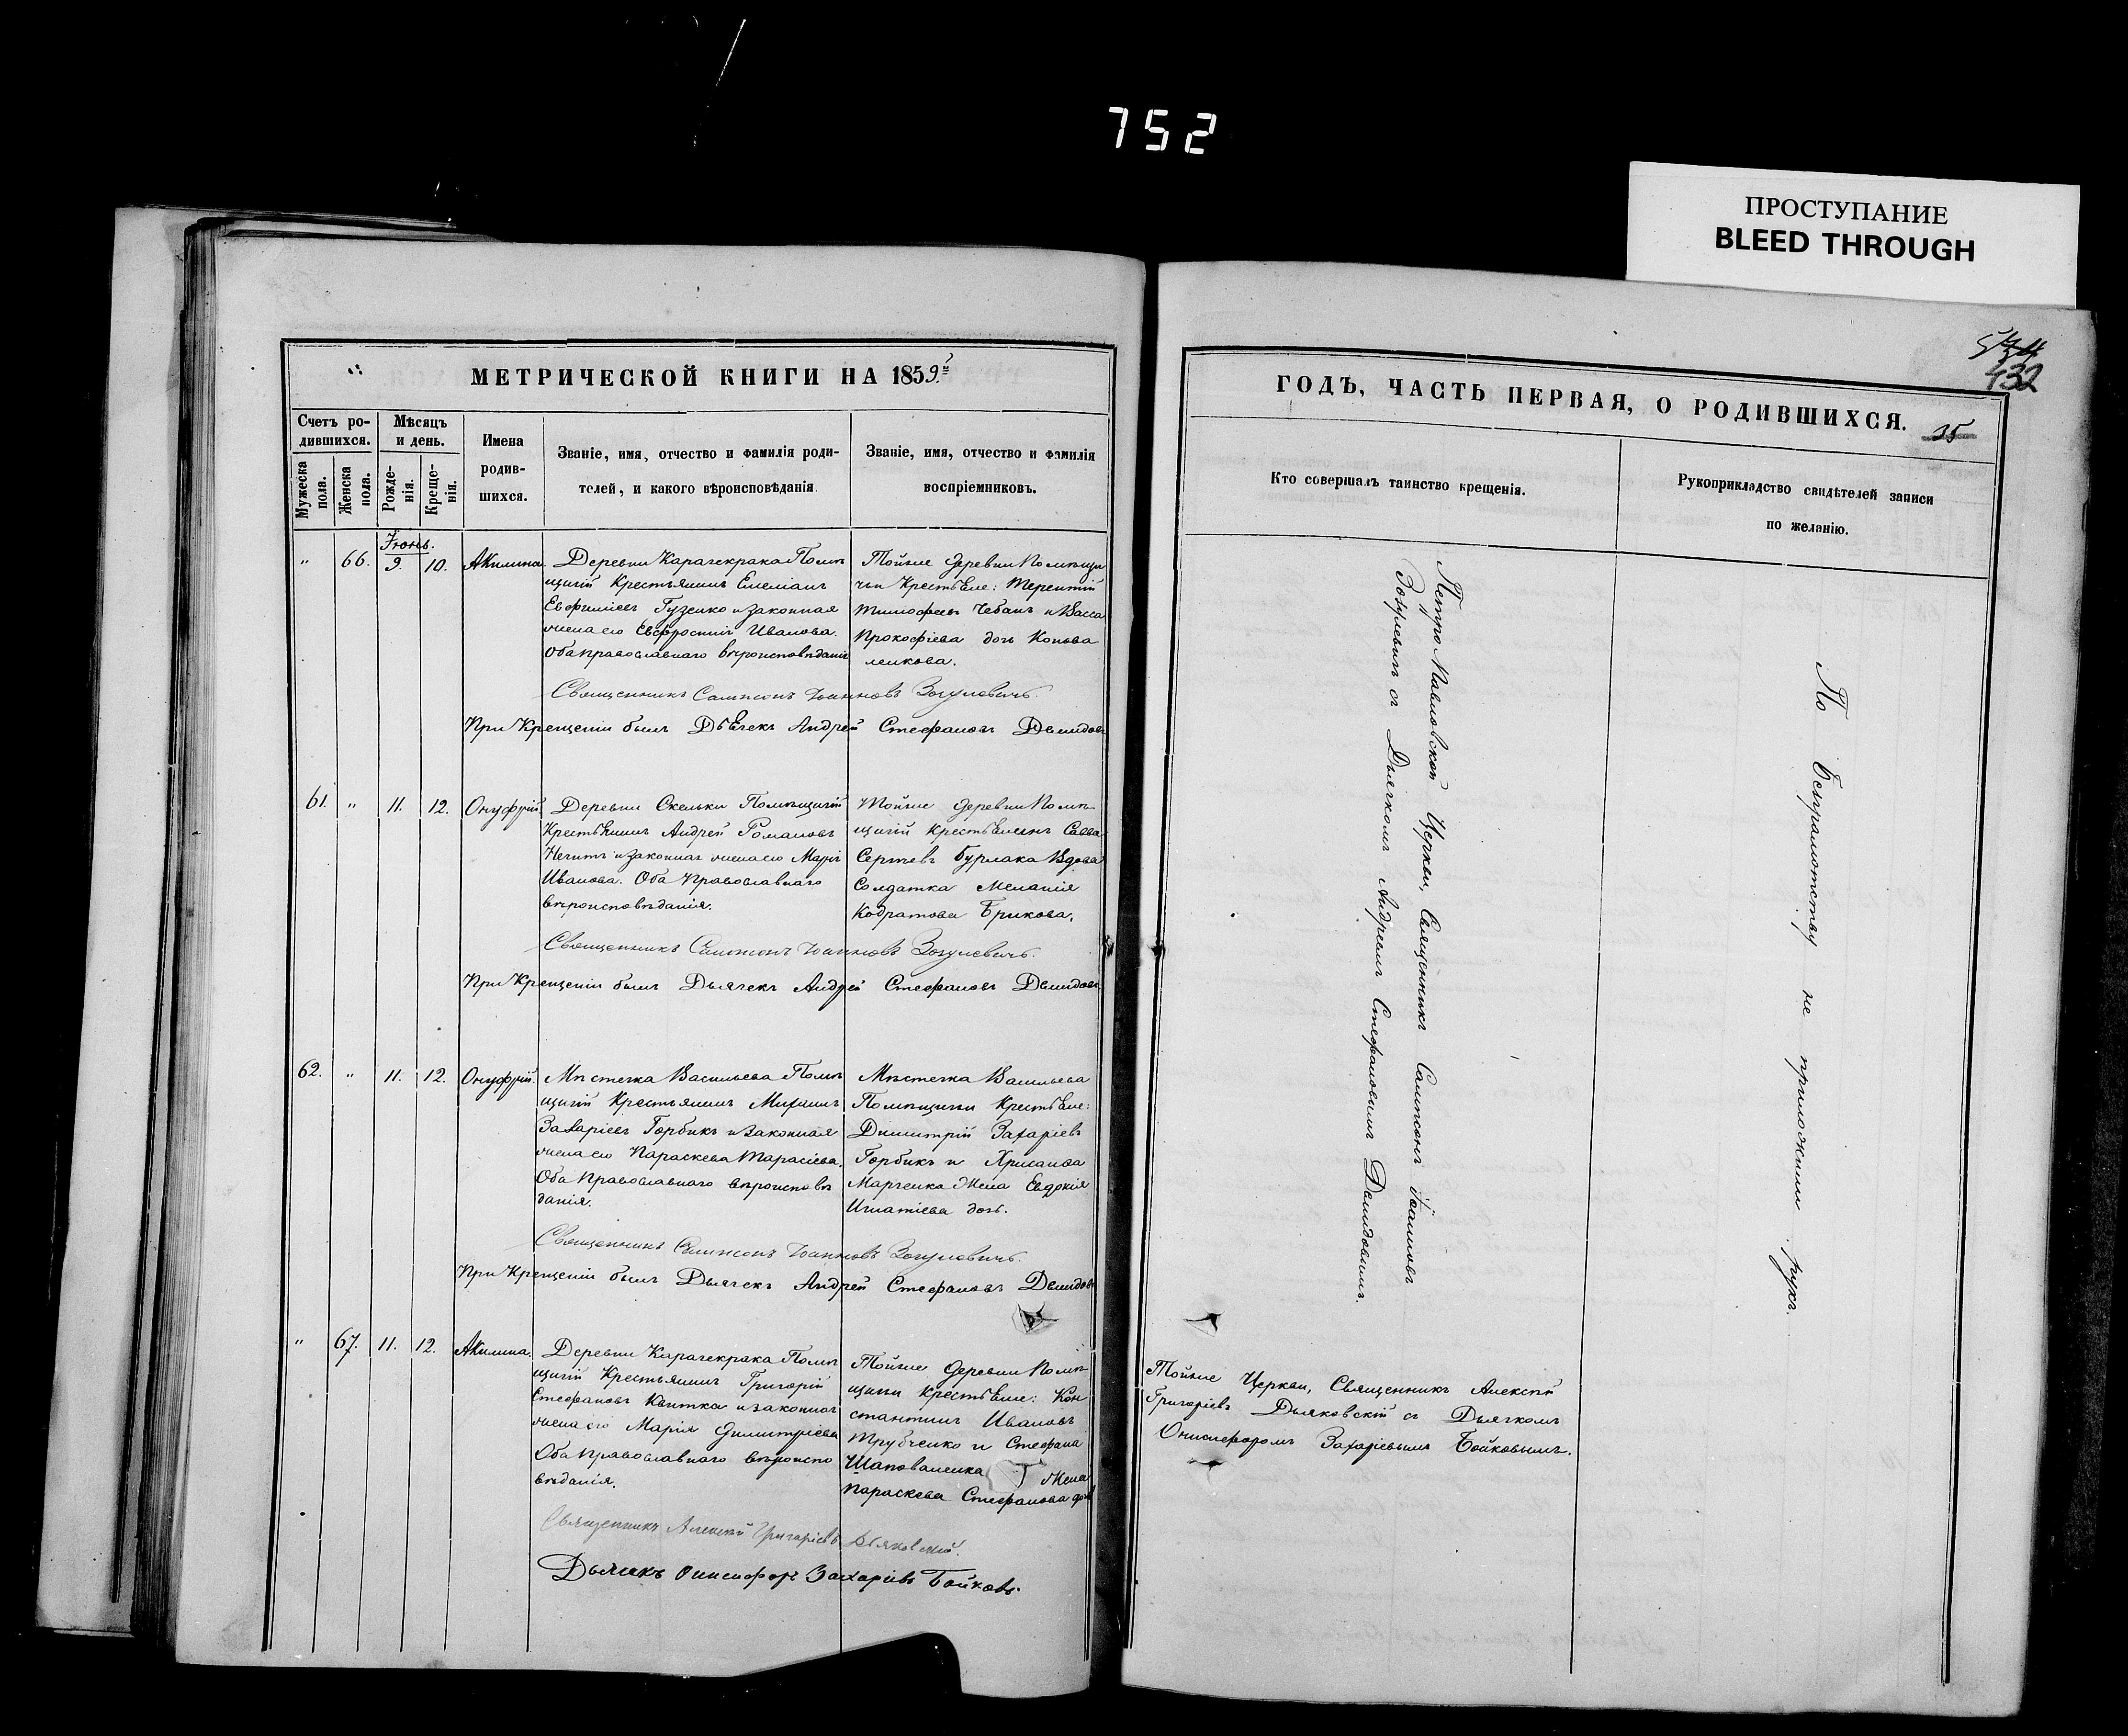 752
ПРОСТУПАНИЕ
BLEED THROUGH
МЕТРИЧЕСКОЙ КНИГИ НА 1859й
Счетъ ро-
дившихся.
Мужеска
пола.
Женска
пола.
Мѣсяцъ
и день.
Рожде-
нія.
Креще-
нія.
Имена
родив-
шихся.
Званіе, имя, отчество и фамилія роди-
телей, и какого вѣроисповѣданія
Званіе, имя, отчество и фамилія
воспріемниковъ.
Іюнь.
" 66. 9. 10. Акилина.
Деревни Карачекрака Помѣ
щичій Крестьянинъ Емеліанъ
Евфиміевъ Гузенко и законная
жена его Евфросинія Иванова.
Оба православнаго вѣроисповѣданія
Тойже деревни Помѣщи
чьи Крестьяне: Терентій
Тимофеевъ Чебанъ и Васса
Прокофіева дочь Конова
ленкова.
Священникъ Сампсонъ Іоанновъ Зозулевичъ.
При Крещеніи былъ Дьячекъ Андрей Стефановъ Демидовъ
61. " 11. 12. Онуфрій.
Деревни Скельки Помѣщичій
Крестьянинъ Андрей Романовъ
и законная жена его Марія
Иванова. Оба Православнаго
вѣроисповѣданія.
Тойже деревни Помѣ-
щичій крестьянинъ Савва
Сергѣевъ Бурлака Вдова
Солдатка Меланія
Кодратова Брикова.
Священникъ Сампсонъ Іоанновъ Зозулевичъ.
При Крещеніи былъ Дьячекъ Андрей Стефановъ Демидовъ
62. " 11. 12. Онуфрій.
Мѣстечка Васильева Помѣ
щичій Крестьянинъ Михаилъ
Захаріевъ Горбикъ и законная
жена его Параскева Тарасіева.
Оба Православнаго вѣроисповѣ
данія.
Мѣстечка Васильева
Помѣщичьи Крестьяне:
Димитрій Захаріевъ
Горбикъ и Хрисанфа
Марченка Жена Евдокія
Игнатіева дочь.
Священникъ Сампсонъ Іоанновъ Зозулевичъ.
При Крещеніи былъ Дьячекъ Андрей Стефановъ Демидовъ
" 67. 11. 12. Акилина.
Деревни Карачекрака Помѣ
щичій Крестьянинъ Григорій
Стефановъ Квитка и законная
жена его Марія Димитріева
Оба Православнаго вѣроиспо
вѣданія.
Тойже деревни Помѣ-
щичьи крестьяне: Кон
стантинъ Ивановъ
Трубченко и Стефана
Шаповаленка Жена
Параскева Стефанова дочь
Священникъ Алексій Григоріевъ Дьяковскій.
Дьячекъ Онисифоръ Захаріевъ Бойковъ.
432
ГОДЪ, ЧАСТЬ ПЕРВАЯ, О РОДИВШИХСЯ.
35
Кто совершалъ таинство крещенія.
Рукоприкладство свидѣтелей записи
по желанію.
Петро Павловской Церкви, Священникъ Сампсонъ Іоанновъ
Зозулевичъ съ Дьячкомъ Андреемъ Стефановымъ Демидовымъ.
По безграмотству не приложили рукъ.
Тойже Церкви, Священникъ Алексій
Григоріевъ Дьяковскій съ Дьячкомъ
Онисифоромъ Захаріевымъ Бойковымъ.